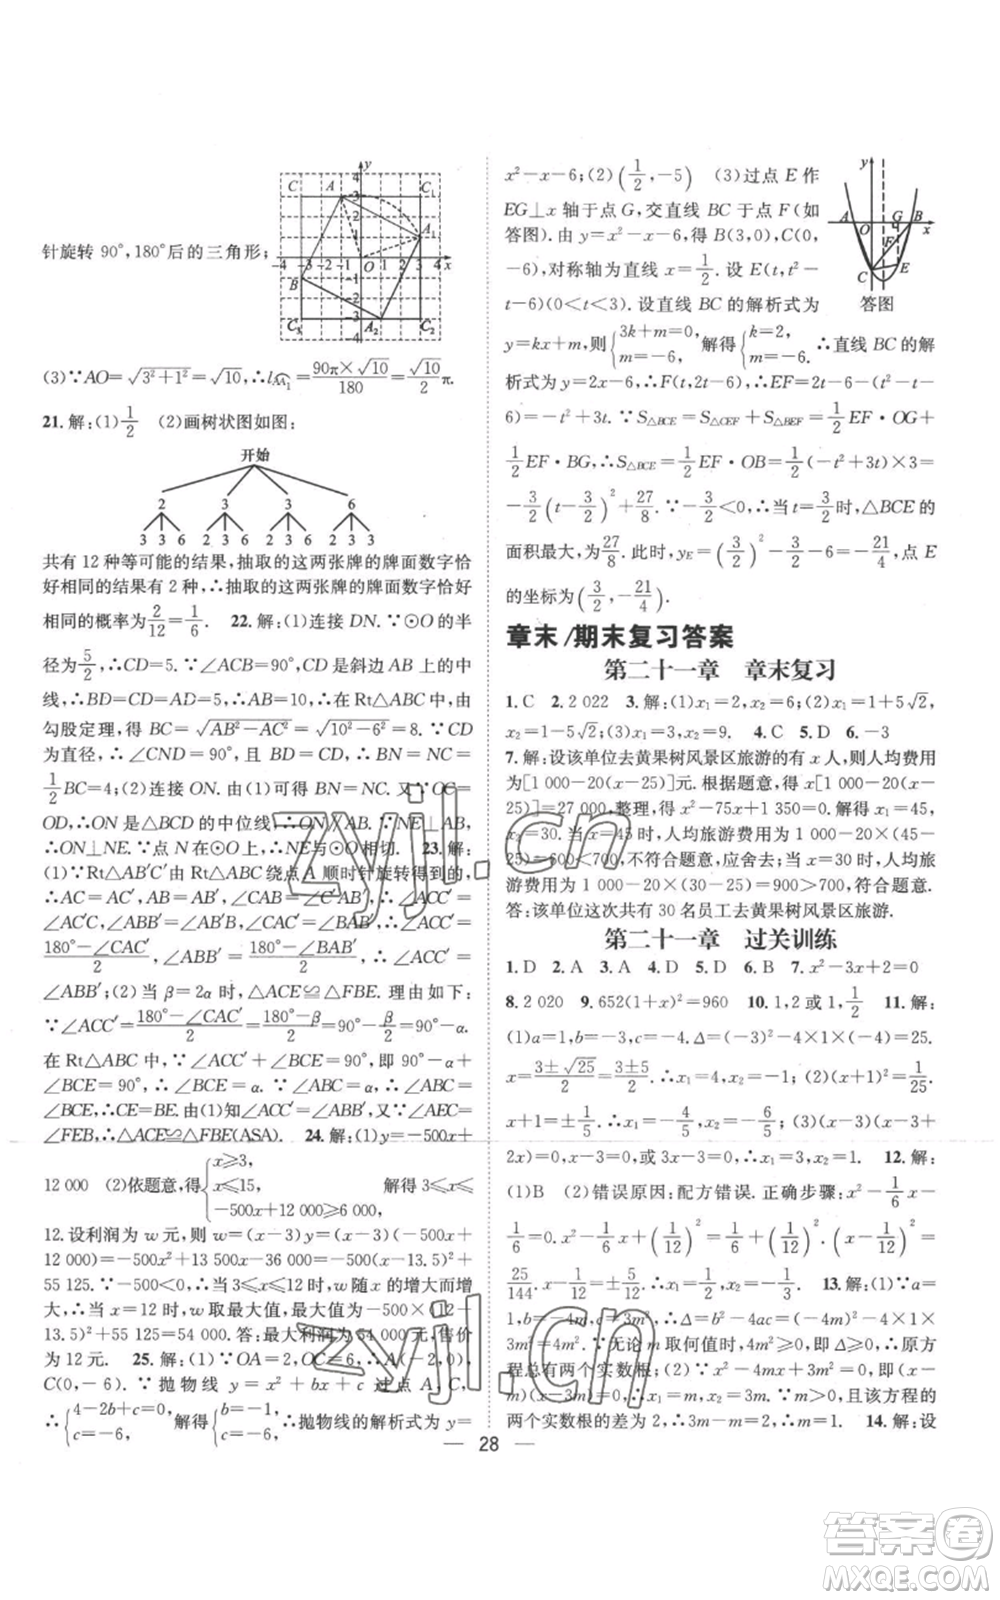 针旋转 90°,180°后的三角形;
y
C A 4 C₁
3
2
1 A₁
-4 -3 -2 -1 O 1 2 3 4 x
B -1
-2
C₃ -3 A₂ C₂
-4
(3)∵AO=√(3²+1²)=√10,∴l_AA₁=90π×√10/180=√10/2 π.
21.解:(1)1/2 (2)画树状图如图:
开始
2 3 3 6
3 3 6 2 3 6 2 3 6 2 3 3
共有 12 种等可能的结果,抽取的这两张牌的牌面数字恰
好相同的结果有 2 种,∴抽取的这两张牌的牌面数字恰好
相同的概率为2/12=1/6. 22.解:(1)连接 DN.∵⊙O 的半
径为5/2,∴CD=5.∵∠ACB=90°,CD 是斜边 AB 上的中
线,∴BD=CD=AD=5,∴AB=10,∴在 Rt△ABC 中,由
勾股定理,得 BC=√(AB²-AC²)=√(10²-6²)=8.∵CD
为直径,∴∠CND=90°,∴DN⊥BC,∴BN=NC=
1/2BC=4;(2)连接 ON.∵BN=NC,又∵OC=
OD,∴ON 是△BCD 的中位线,∴ON∥AB.∵NE⊥AB,
∴ON⊥NE.∵点 N 在⊙O 上,∴NE与⊙O 相切. 23.解:
(1)∵Rt△AB′C′是由 Rt△ABC 绕点 A 顺时针旋转得到的,
∴AC=AC′,AB=AB′,∠CAB=∠C′AB′,∴∠CAC′=
∠BAB′,∠ABB′=∠AB′B,∠ACC′=∠AC′C.∴∠ACC′=
(180°-∠CAC′)/2,∠ABB′=(180°-∠BAB′)/2,∴∠ACC′=
∠ABB′;(2)当 β=2α 时,△ACE≌△FBE. 理由如下:
∵∠ACC′=(180°-∠CAC′)/2=(180°-β)/2=90°-α.
在 Rt△ABC 中,∵∠ACC′+∠BCE=90°,即 90°-α+
∠BCE=90°,∴∠BCE=α.∵∠ABC=α,∴∠ABC=
∠BCE,∴CE=BE.由(1)知∠ACC′=∠ABB′,∵∠AEC=
∠FEB,∴△ACE≌△FBE(ASA). 24.解:(1)y=-500x+
12 000 (2)依题意,得{x≥3, x≤15, -500x+12 000≥6 000, 解得 3≤x≤
12.设利润为 w 元,则 w=(x-3)y=(x-3)(-500x+
12 000)=-500x²+13 500x-36 000=-500(x-13.5)²+
55 125.∵-500<0,∴当 3≤x≤12 时,w 随 x 的增大而增
大,∴当 x=12 时,w 取最大值,最大值为-500×(12-
13.5)²+55 125=54 000.答:最大利润为 54 000 元,售价
为 12 元. 25.解:(1)∵OA=2,OC=6,∴A(-2,0),
C(0,-6).∵抛物线 y=x²+bx+c 过点 A,C,
∴{4-2b+c=0, c=-6, 解得{b=-1, c=-6, ∴抛物线的解析式为 y=
x²-x-6;(2)(1/2,-5) (3)过点 E 作
EG⊥x 轴于点 G,交直线 BC 于点 F(如
答图).由 y=x²-x-6,得 B(3,0),C(0,
-6),对称轴为直线 x=1/2.设 E(t,t²-
t-6)(0<t<3).设直线 BC 的解析式为
y
A O G B x
F
C E
答图
y=kx+m,则{3k+m=0, m=-6, 解得{k=2, m=-6. ∴直线 BC 的解
析式为 y=2x-6,∴F(t,2t-6),∴EF=2t-6-(t²-t-
6)=-t²+3t.∵S△BCE=S△CEF+S△BEF=1/2EF·OG+
1/2EF·BG,∴S△BCE=1/2EF·OB=1/2(-t²+3t)×3=
-3/2(t-3/2)²+27/8.∵-3/2<0,∴当 t=3/2时,△BCE 的
面积最大,为27/8.此时,yE=(3/2)²-3/2-6=-21/4,点 E
的坐标为(3/2,-21/4).
章末/期末复习答案
第二十一章 章末复习
1.C 2.2 022 3.解:(1)x₁=2,x₂=6;(2)x₁=1+5√2,
x₂=1-5√2;(3)x₁=3,x₂=9. 4.C 5.D 6.-3
7.解:设该单位去黄果树风景区旅游的有 x 人,人均费用
为[1 000-20(x-25)]元.根据题意,得 x[1 000-20(x-
25)]=27 000,整理,得 x²-75x+1 350=0.解得 x₁=45,
x₂=30.当 x=45 时,人均旅游费用为 1 000-20×(45-
25)=600<700,不符合题意,应舍去;当 x=30 时,人均旅
游费用为 1 000-20×(30-25)=900>700,符合题意.
答:该单位这次共有 30 名员工去黄果树风景区旅游.
第二十一章 过关训练
1.D 2.A 3.A 4.D 5.D 6.B 7.x²-3x+2=0
8.2 020 9.652(1+x)²=960 10.1,2或1,1/2 11.解:
(1)a=1,b=-3,c=-4.Δ=(-3)²-4×1×(-4)=25.
x=(3±√25)/2=(3±5)/2,∴x₁=4,x₂=-1;(2)(x+1)²=1/25.
x+1=±1/5,∴x₁=-4/5,x₂=-6/5;(3)(x-3)(x-3+
2x)=0,∴x-3=0,或3x-3=0,∴x₁=3,x₂=1. 12.解:
(1)B (2)错误原因:配方错误.正确步骤:x²-1/6x-
1/6=0.x²-1/6x=1/6.x²-1/6x+(1/12)²=1/6+(1/12)².(x-1/12)²=
25/144.x-1/12=±5/12.∴x₁=1/2,x₂=-1/3. 13.解:(1)∵a=
1,b=-4m,c=3m²,∴Δ=b²-4ac=(-4m)²-4×1×
3m²=4m².∵无论 m 取何值时,4m²≥0,即 Δ≥0,∴原方
程总有两个实数根;(2)∵x²-4mx+3m²=0,即(x-
m)(x-3m)=0,∴x₁=m,x₂=3m.∵m>0,且该方程的
两个实数根的差为 2,∴3m-m=2,∴m=1. 14.解:设
— 28 —
zyjl.cn
zyjl.cn
答案圈
MXQE.COM